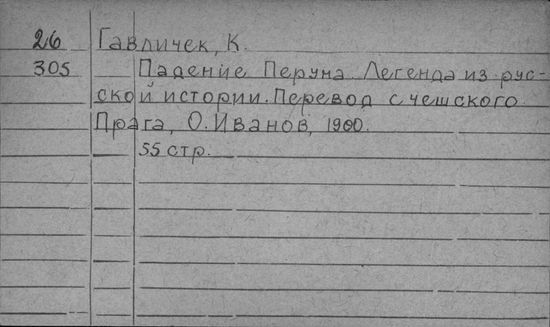 26 Гавличек, К.
305 Падение Перуна Легенда из рус-
ской истории. Перевод с чешского
Прага, О. Иванов, 1900.
55 стр.